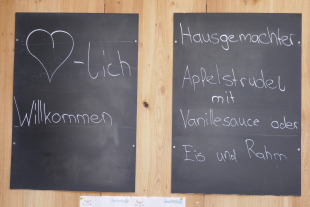 ♡-lich
Willkommen
Hausgemachter
Apfelstrudel
mit
Vanillesauce oder
Eis und Rahm